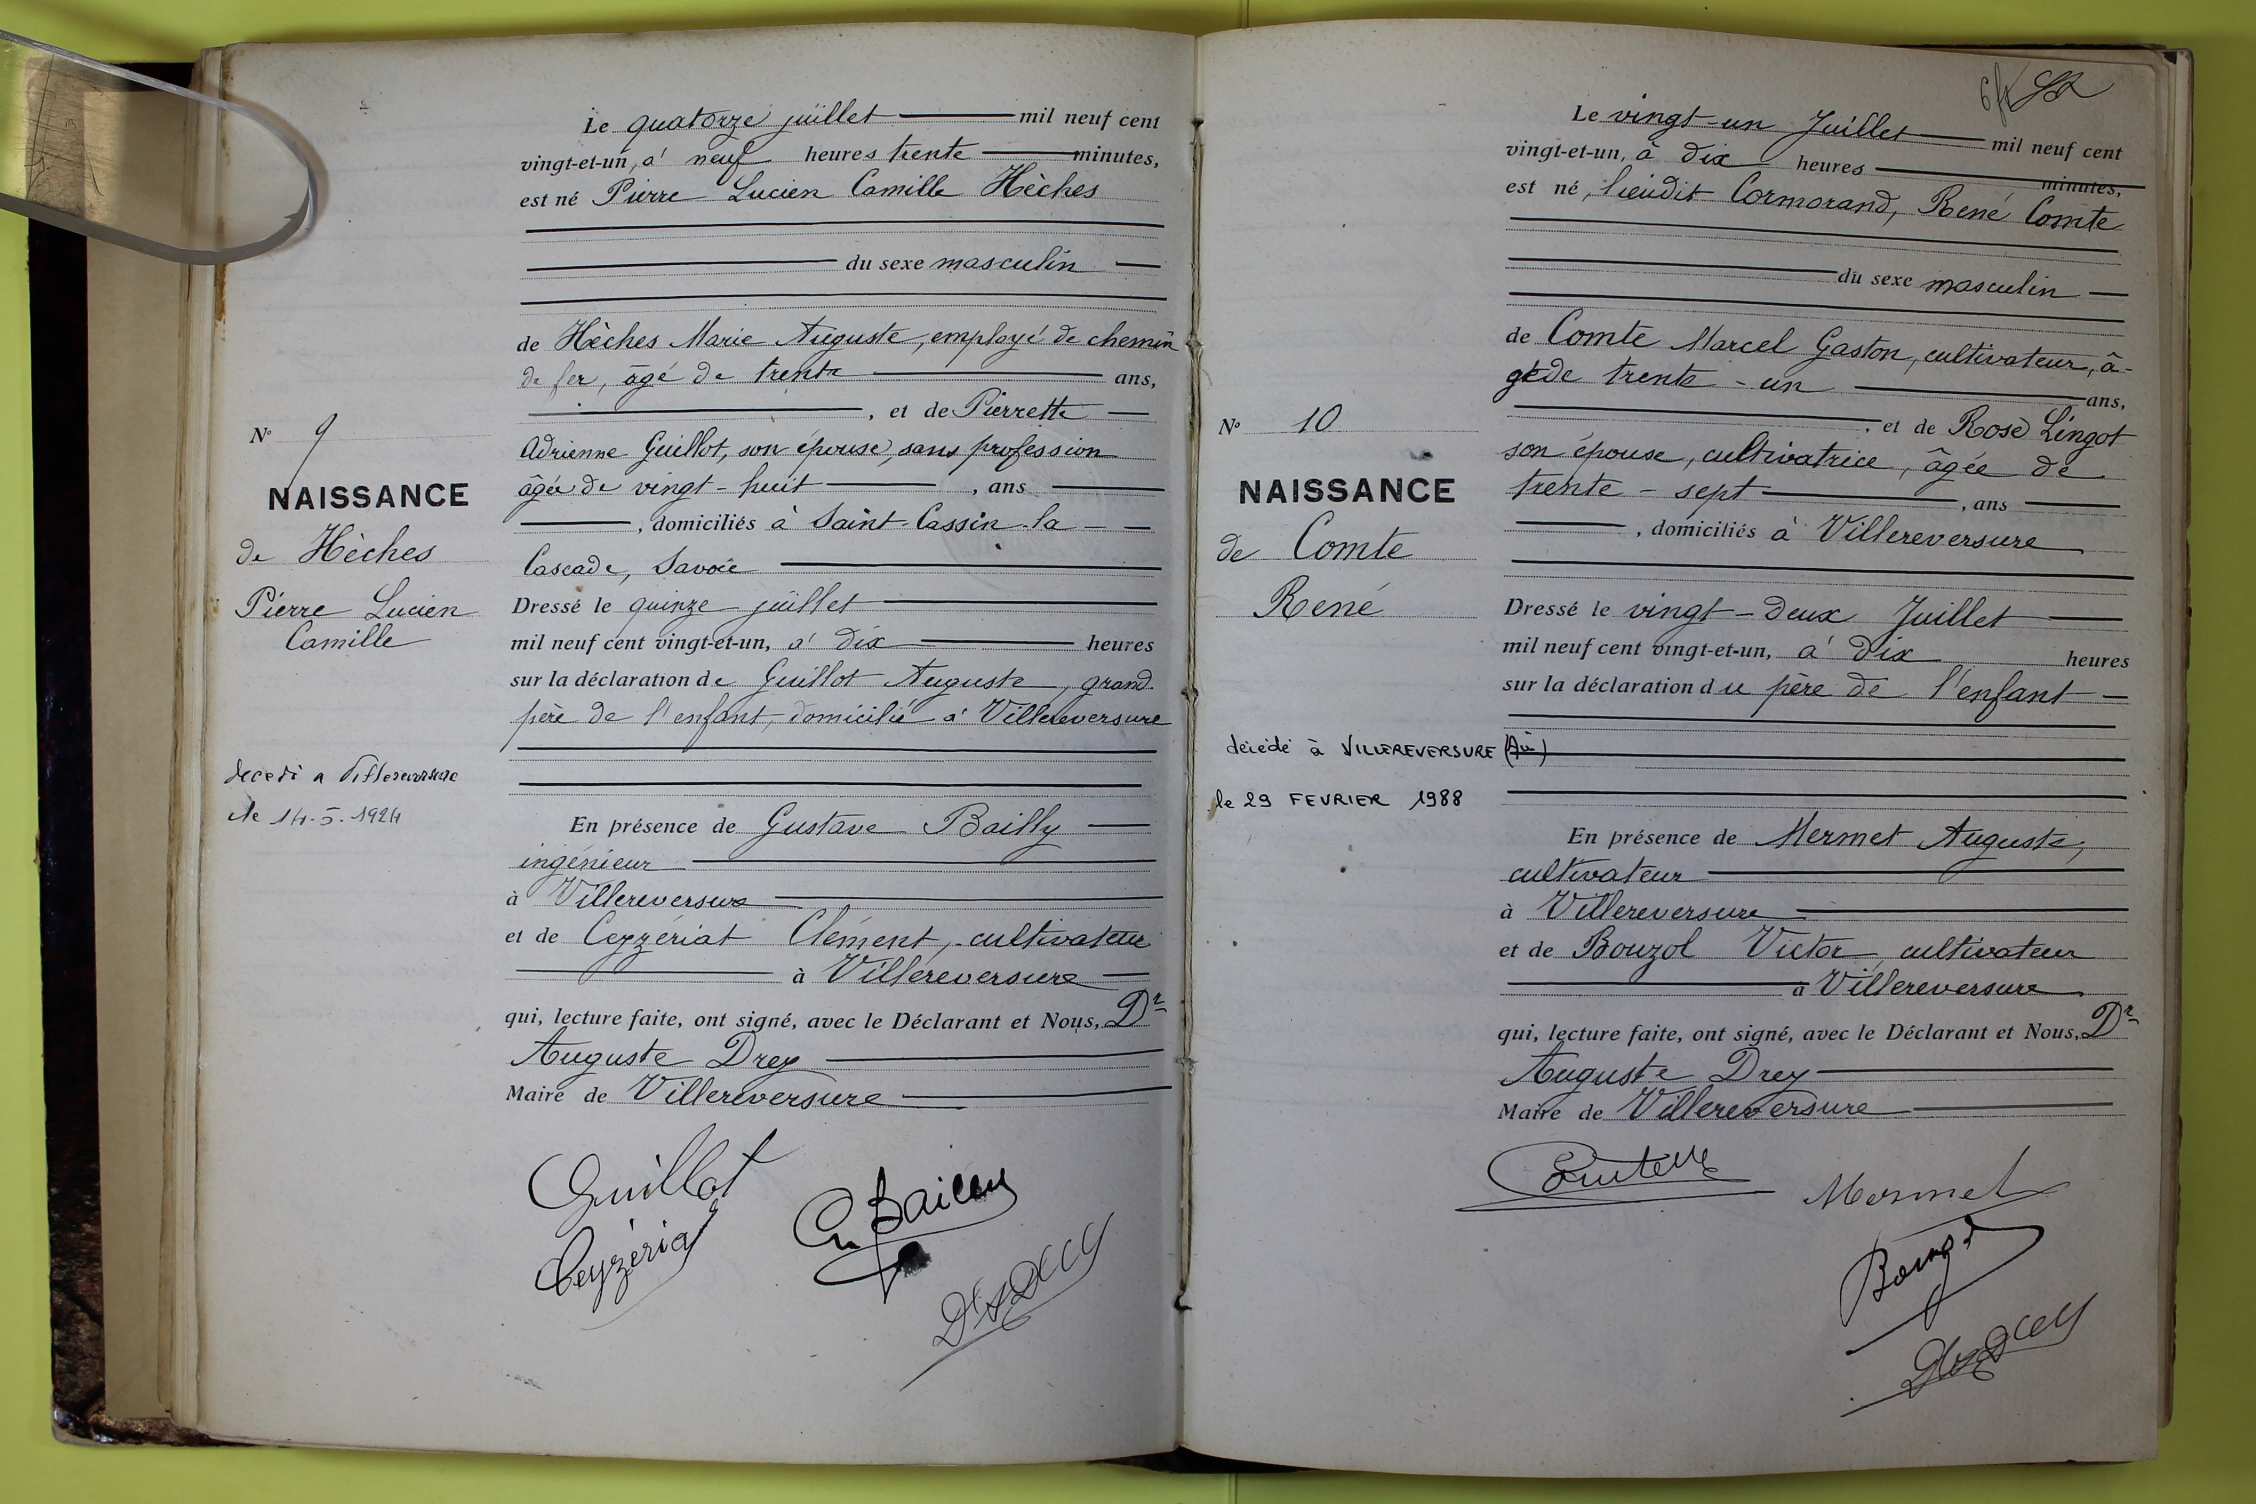 Le quatorze juillet mil neuf cent
vingt-et-un, à neuf heures trente minutes,
est né Pierre Lucien Camille Hèches
du sexe masculin
de Hèches Marie Auguste, employé de chemin
de fer, âgé de trente ans,
, et de Pierrette
Adrienne Guillot, son épouse, sans profession
âgée de vingt-huit , ans
, domiciliés à Saint-Cassin-la-
Cascade, Savoie
Dressé le quinze juillet
mil neuf cent vingt-et-un, à dix heures
sur la déclaration de Guillot Auguste, grand-
père de l'enfant, domicilié à Villereversure
En présence de Gustave Bailly
ingénieur
à Villereversure
et de Ceyzériat Clément, cultivateur
à Villereversure
qui, lecture faite, ont signé, avec le Déclarant et Nous, Dr
Auguste Drey
Maire de Villereversure
Guillot
Ceyzériat
G Bailly
Dr A Drey
N° 9
NAISSANCE
de Hèches
Pierre Lucien
Camille
décédé à Villereversure
le 14-5-1924
Le vingt-un Juillet mil neuf cent
vingt-et-un, à dix heures minutes,
est né, lieudit Cormorand, René Comte
du sexe masculin
de Comte Marcel Gaston, cultivateur, â-
gé de trente-un ans,
, et de Rose Lingot
son épouse, cultivatrice, âgée de
trente-sept , ans
, domiciliés à Villereversure
Dressé le vingt-deux Juillet
mil neuf cent vingt-et-un, à dix heures
sur la déclaration du père de l'enfant
En présence de Mermet Auguste,
cultivateur
à Villereversure
et de Bouzol Victor, cultivateur
à Villereversure
qui, lecture faite, ont signé, avec le Déclarant et Nous, Dr
Auguste Drey
Maire de Villereversure
Mermet
Bouzol
Dr A Drey
N° 10
NAISSANCE
de Comte
René
décédé à VILLEREVERSURE (Ain)
le 29 FEVRIER 1988